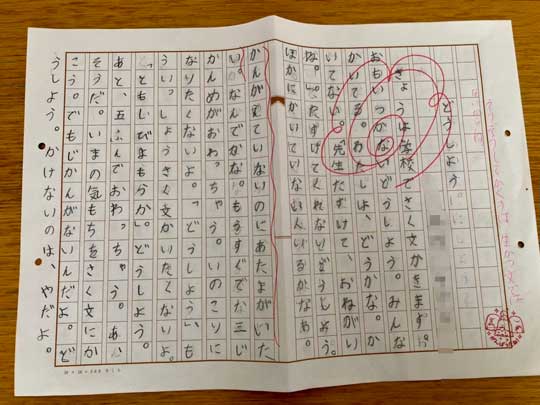 どうしよう。
きょうは学校でさく文がきます。
おもいつかないどうしよう。みんな
かいてる。わたしは、どうかな。か
いてない。先生たすけて、おねがい
な。」たすけてくれないどうしよう。
ほかにかいていない人いるかなあ。
かんがえていないのにあたまがいた
い。なんでかな。もうすぐで二三じ
かんめがおわっちゃう。いのこりに
なりたくないよ。「どうしよう」も
うい。しょうさく文かいたくないよ。
「ともしびまもうか。」どうしよう。
あと、五ふんでおわっちゃう。あ、
そうだ。いまの気もちをさく文にか
こう。でもじかんがないんだよ。ど
うしよう。かけないのは、やだよ。